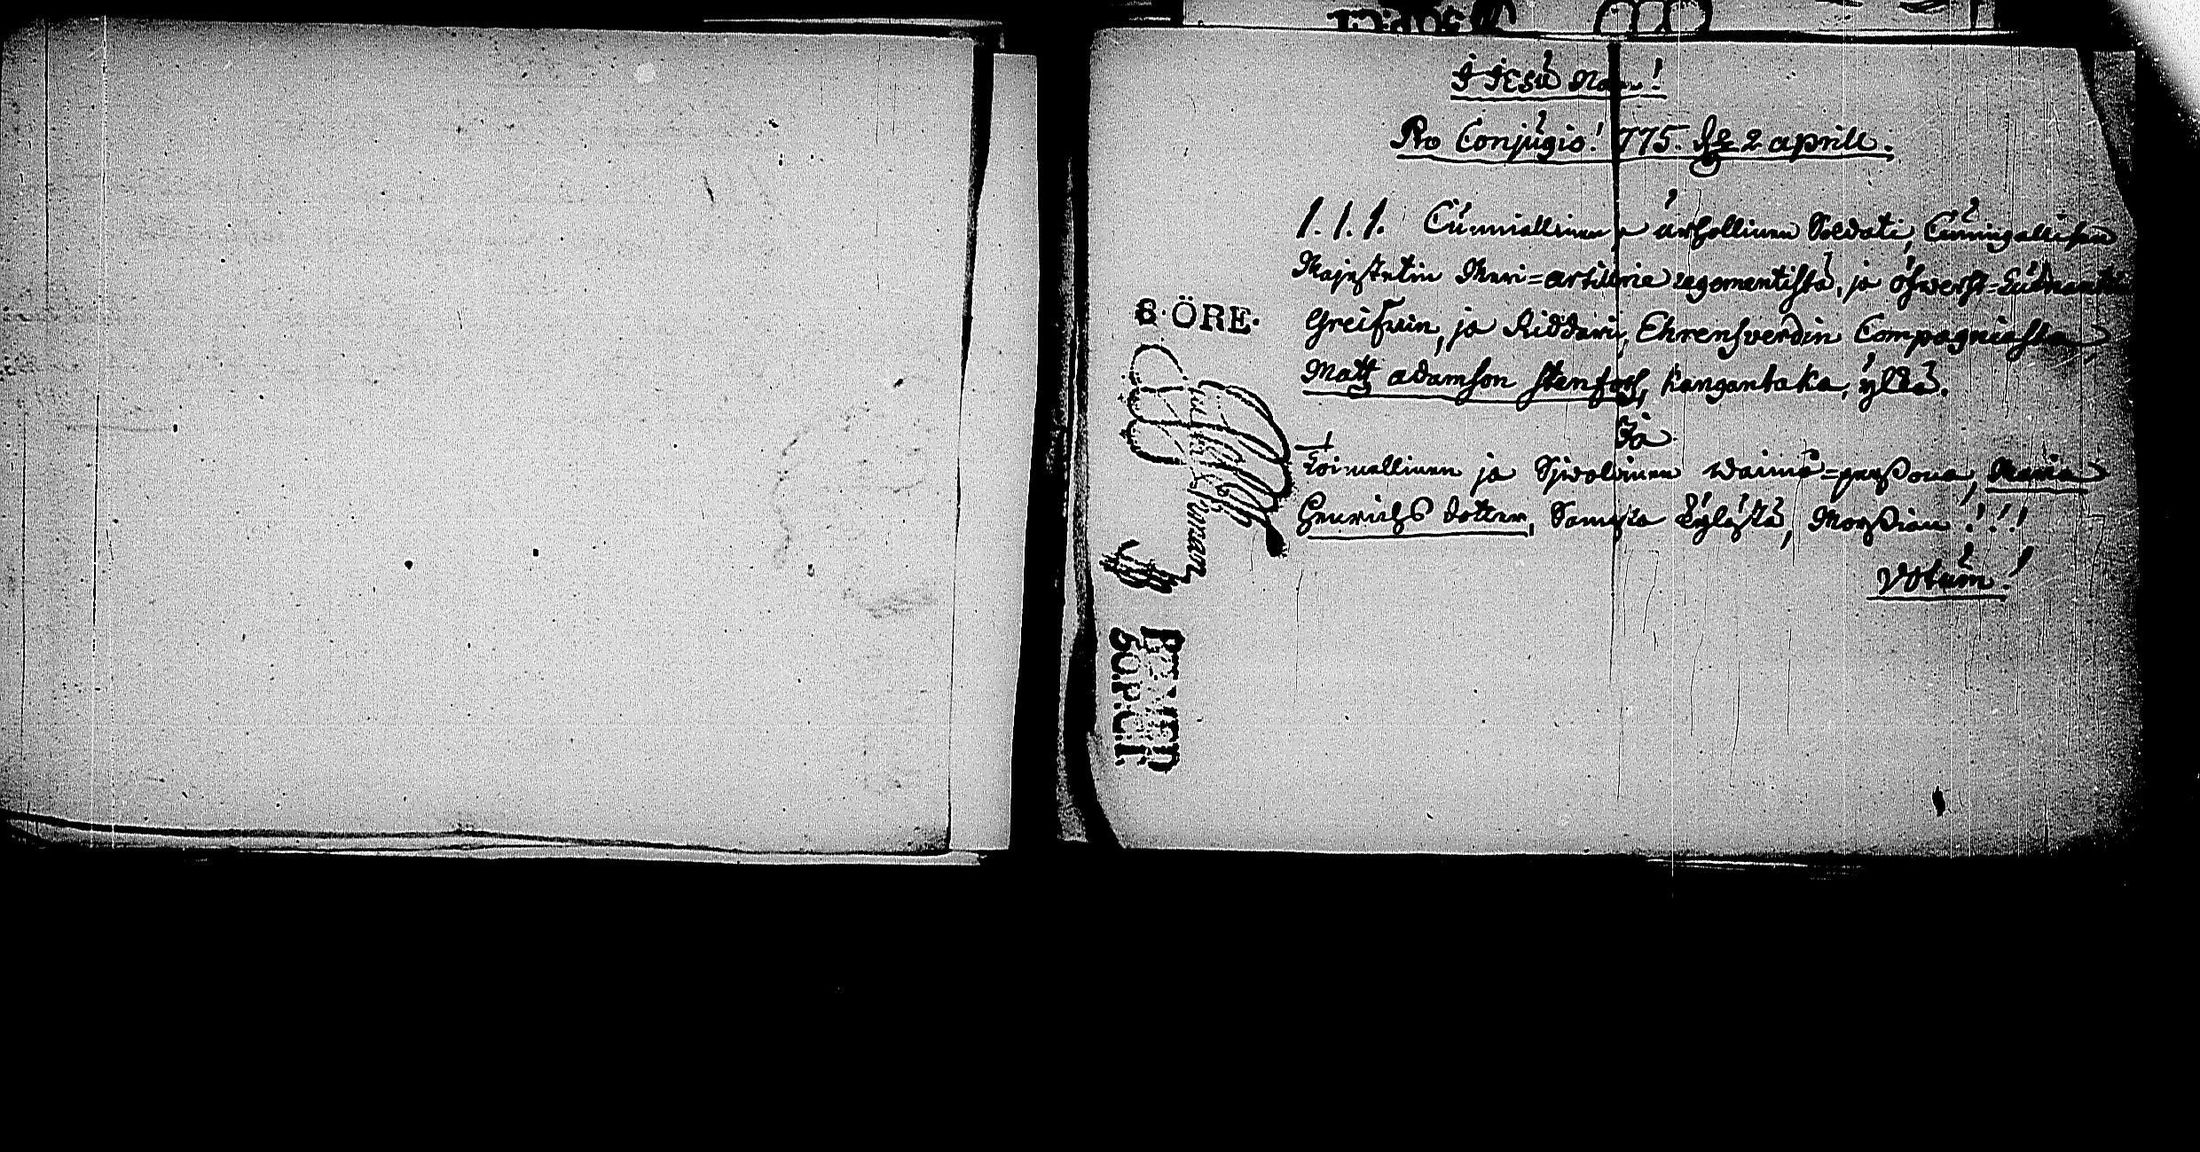 I JESU Nam!
Pro Conjúgio! 1775. de 2 aprill.
1.1.1. Cúnniallinen ja úrhollinen Soldati, Cúningallisen
Majestetin Meri=artillerie regementistä, ja öfwerst=Lúdnantin
Greifwin, ja Riddarin, Ehrensverdin Compagniasta
Matz adamson stenfors, kangantaka, ÿldä.
Ja
Toimellinen ja Sjwolinen waimo=perßona, Maria
Henrichs dotter, Samasta Kÿlästä, Morßian!!!
Votúm!
8·ÖRE·
50.P:CT.